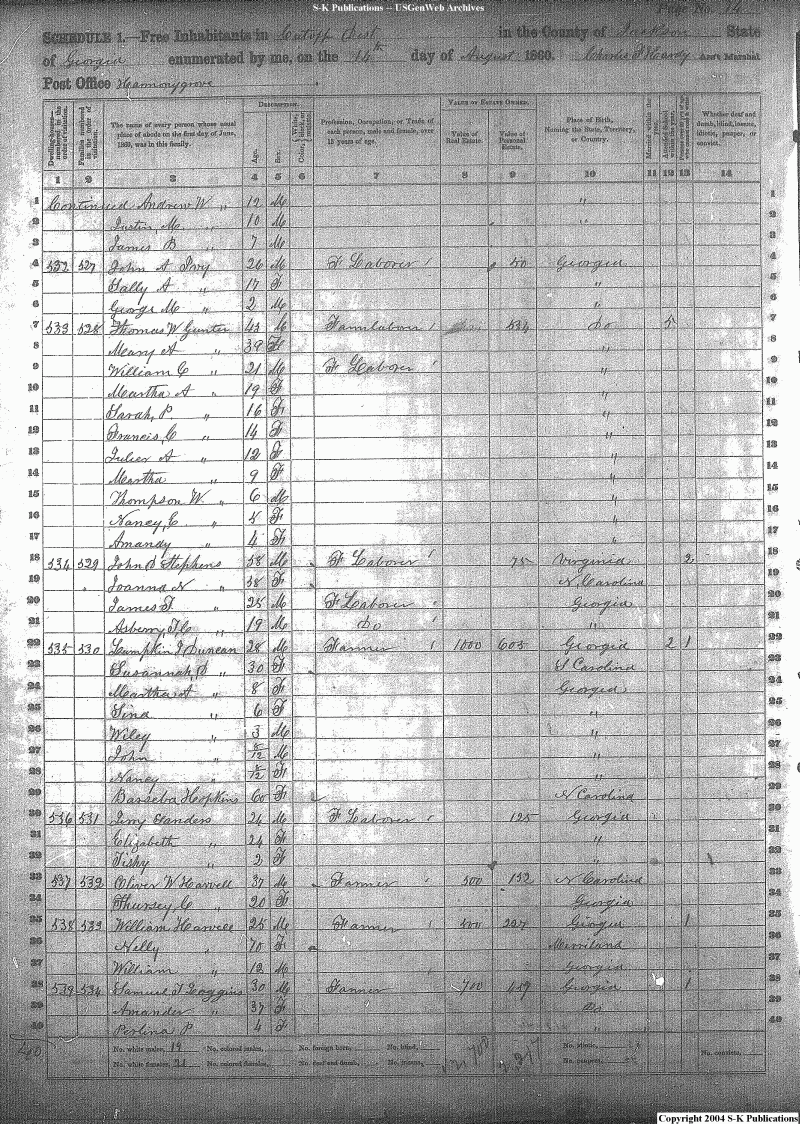 S-K Publications -- USGenWeb Archives
Page No. 74
SCHEDULE 1.—Free Inhabitants in Cutoff Dist in the County of Jackson State
of Georgia enumerated by me, on the 14th day of August 1860. Charles P Hardy Ass't Marshal
Post Office Harmonygrove
Dwelling-houses—numbered in the order of visitation.
Families numbered in the order of visitation.
The name of every person whose usual place of abode on the first day of June, 1860, was in this family.
DESCRIPTION.
Age.
Sex.
Color, White, black, or mulatto.
Profession, Occupation, or Trade of each person, male and female, over 15 years of age.
VALUE OF ESTATE OWNED.
Value of Real Estate.
Value of Personal Estate.
Place of Birth, Naming the State, Territory, or Country.
Married within the year.
Attended School within the year.
Whether deaf and dumb, blind, insane, idiotic, pauper, or convict.
1 2 3 4 5 6 7 8 9 10 11 12 13 14
1 Continued Andrew W " 12 M " 1
2 Justin M. " 10 M " 2
3 James B " 7 M 3
4 532 527 John A Ivy 26 M F Laborer 50 Georgia 4
5 Sally A " 17 F " 5
6 George M " 2 M " 6
7 533 528 Thomas W Gunter 43 M Farmlaborer 534 Do 5 7
8 Meary A " 39 F " 8
9 William C " 21 M F Laborer " 9
10 Meartha A " 19 F " 10
11 Sarah, P " 16 F " 11
12 Francis, C " 14 F " 12
13 Julier A " 12 F " 13
14 Meartha " 9 F " 14
15 Thompson W " 6 M " 15
16 Nancy, E " 5 F " 16
17 Amandy " 4 F " 17
18 534 529 John S Stephens 58 M F Laborer 75 Virginia 2 18
19 Joanna N " 58 F N Carolina 19
20 James T " 25 M F Laborer Georgia 20
21 Asberry, F C " 19 M Do " 21
22 535 530 Lumpkin J Duncan 28 M Farmer 1000 605 Georgia 2 1 22
23 Susannah, S " 30 F S Carolina 23
24 Meartha A " 8 F Georgia 24
25 Sina " 6 F " 25
26 Wiley " 3 M " 26
27 John " 8/12 M " 27
28 Nancy " 8/12 F " 28
29 Barseba Hopkins 60 F N Carolina 29
30 536 531 Jimy Sanders 24 M F Laborer 125 Georgia 30
31 Elizabeth " 24 F " 31
32 Tishy " 2 F " 32
33 537 532 Oliver W Harvell 37 M Farmer 500 152 N Carolina 33
34 Thursey C " 20 F Georgia 34
35 538 533 William Harvell 25 M Farmer 500 227 Georgia 1 35
36 Nelly " 70 F Merriland 36
37 William " 12 M Georgia 37
38 539 534 Samuel T Loggins 30 M Farmer 700 449 Georgia 1 38
39 Amander " 37 F Do 39
40 Perlina P " 4 F " 40
No. white males, 19 No. colored males, No. foreign born, No. blind,
No. white females, 21 No. colored females, No. deaf and dumb, No. insane,
No. idiotic,
No. paupers,
No. convicts,
2700
2,217
Copyright 2004 S-K Publications